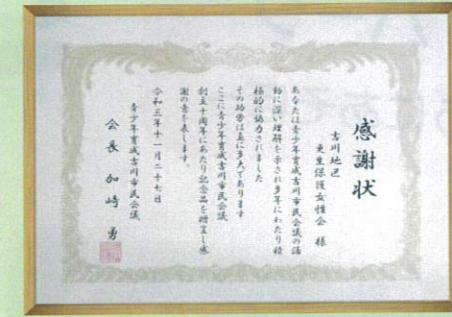 感謝状
吉川地区
更生保護女性会 様
あなたは青少年育成吉川市民会議の活
動に深い理解を示され多年にわたり積
極的に協力されました
その功労は真に多大であります
ここに青少年育成吉川市民会議
創立十周年にあたり記念品を贈呈し感
謝の意を表します。
令和三年十一月二十七日
青少年育成吉川市民会議
会長 加崎 勇